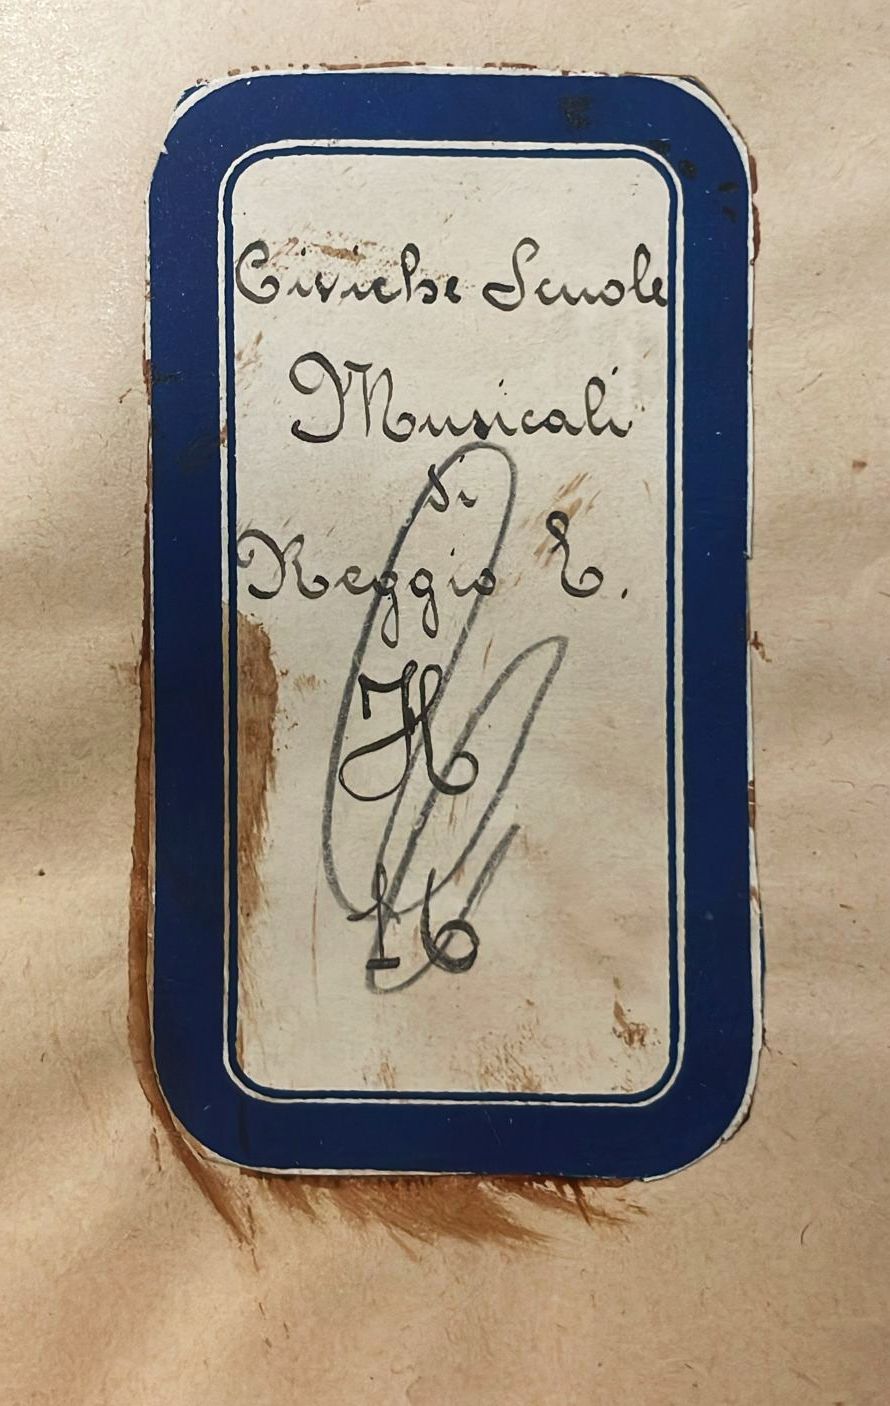 Civiche Scuole
Musicali
di
Reggio E.
H
16